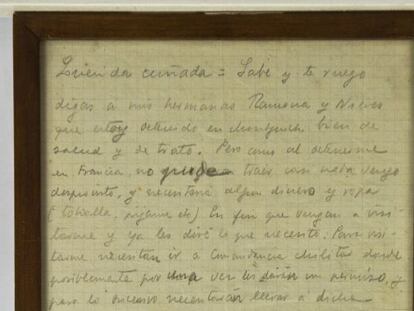 Querida cuñada = Sabe y te ruego
digas a mis hermanas Ramona y Nieves
que estoy detenido en bien de
salud y de trato. Pero como al detenerme
en Francia no pude traer con nada vengo
desprovisto, y necesitaré algun dinero y ropa
(toballa, pijama etc) En fin que vengan a visi-
tarme y ya les diré lo que necesito. Para visi-
tarme necesitan ir a Comandancia Militar donde
posiblemente por ver les darán un permiso, y
para lo sucesivo necesitarán llevar a dicha